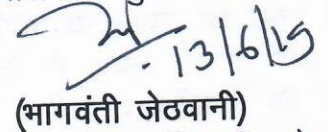 13/6/19
(भागवंती जेठवानी)